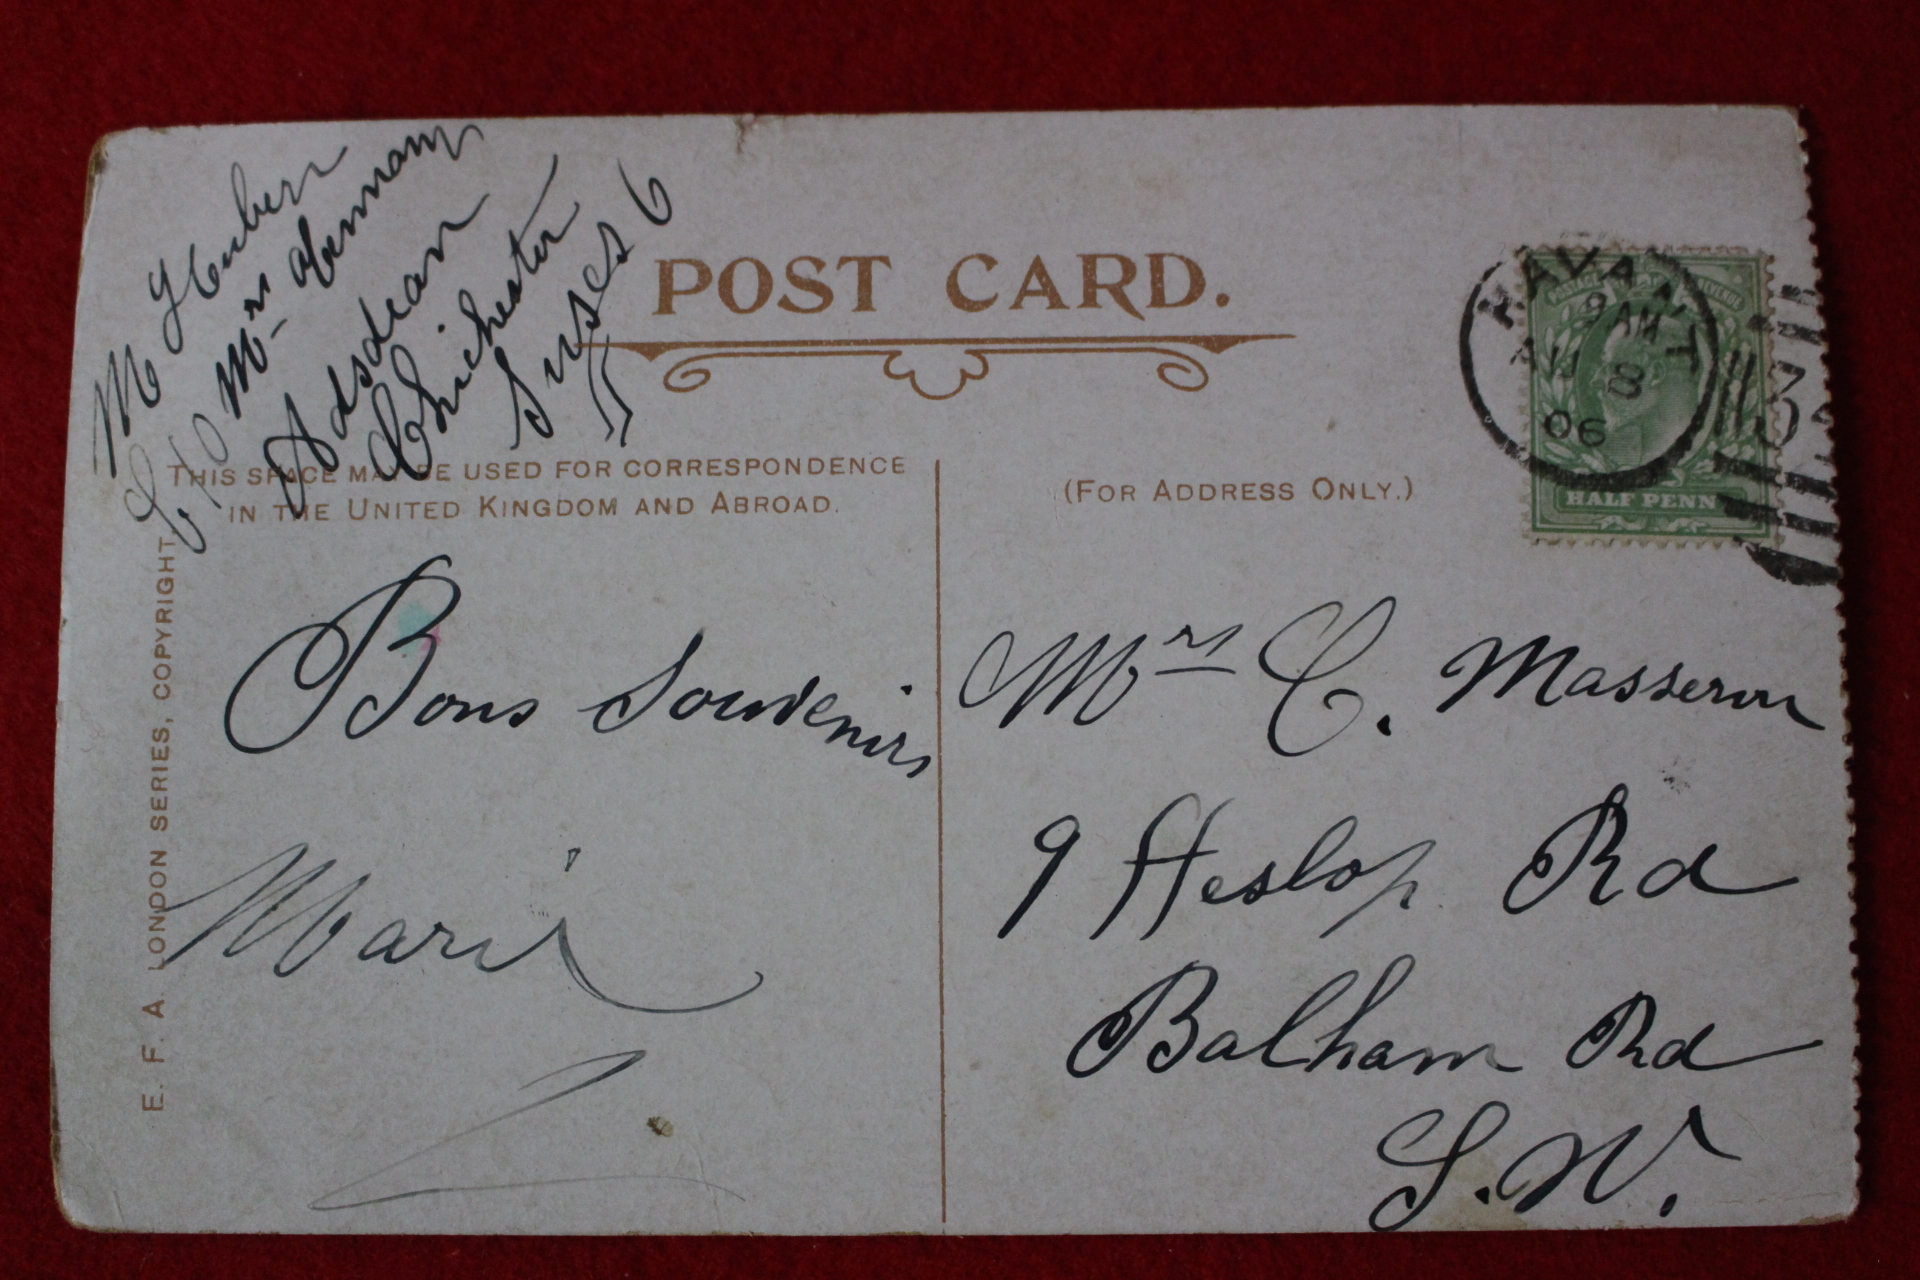 M Huber
C/o Mrs
Adsdean
Chichester
Sussex
POST CARD.
THIS SPACE MAY BE USED FOR CORRESPONDENCE
IN THE UNITED KINGDOM AND ABROAD.
(FOR ADDRESS ONLY.)
HAVANT
9 AM
AU 8
06
POSTAGE REVENUE
HALF PENN
E. F. A. LONDON SERIES, COPYRIGHT.
Bons Souvenirs
Marie
Mrs C. Masseron
9 Heslop Rd
Balham Rd
S.W.